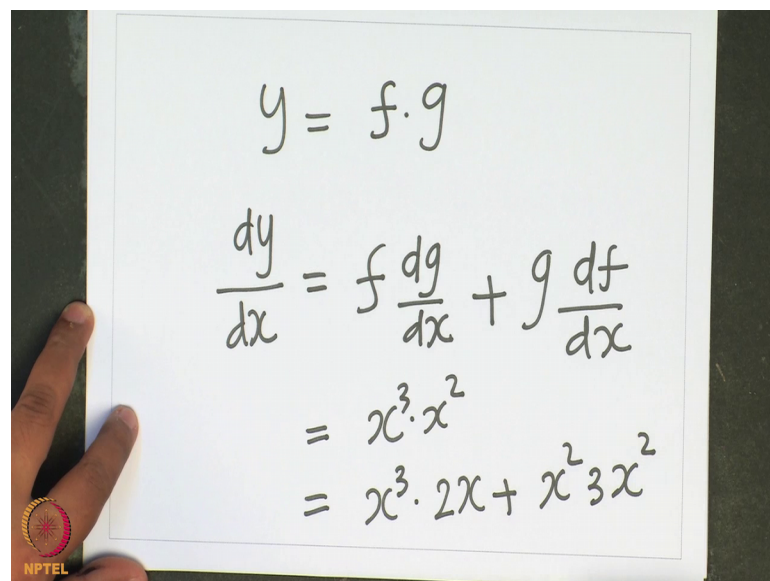 y = f · g
dy/dx = f dg/dx + g df/dx
= x³ · x²
= x³ · 2x + x² 3x²
NPTEL